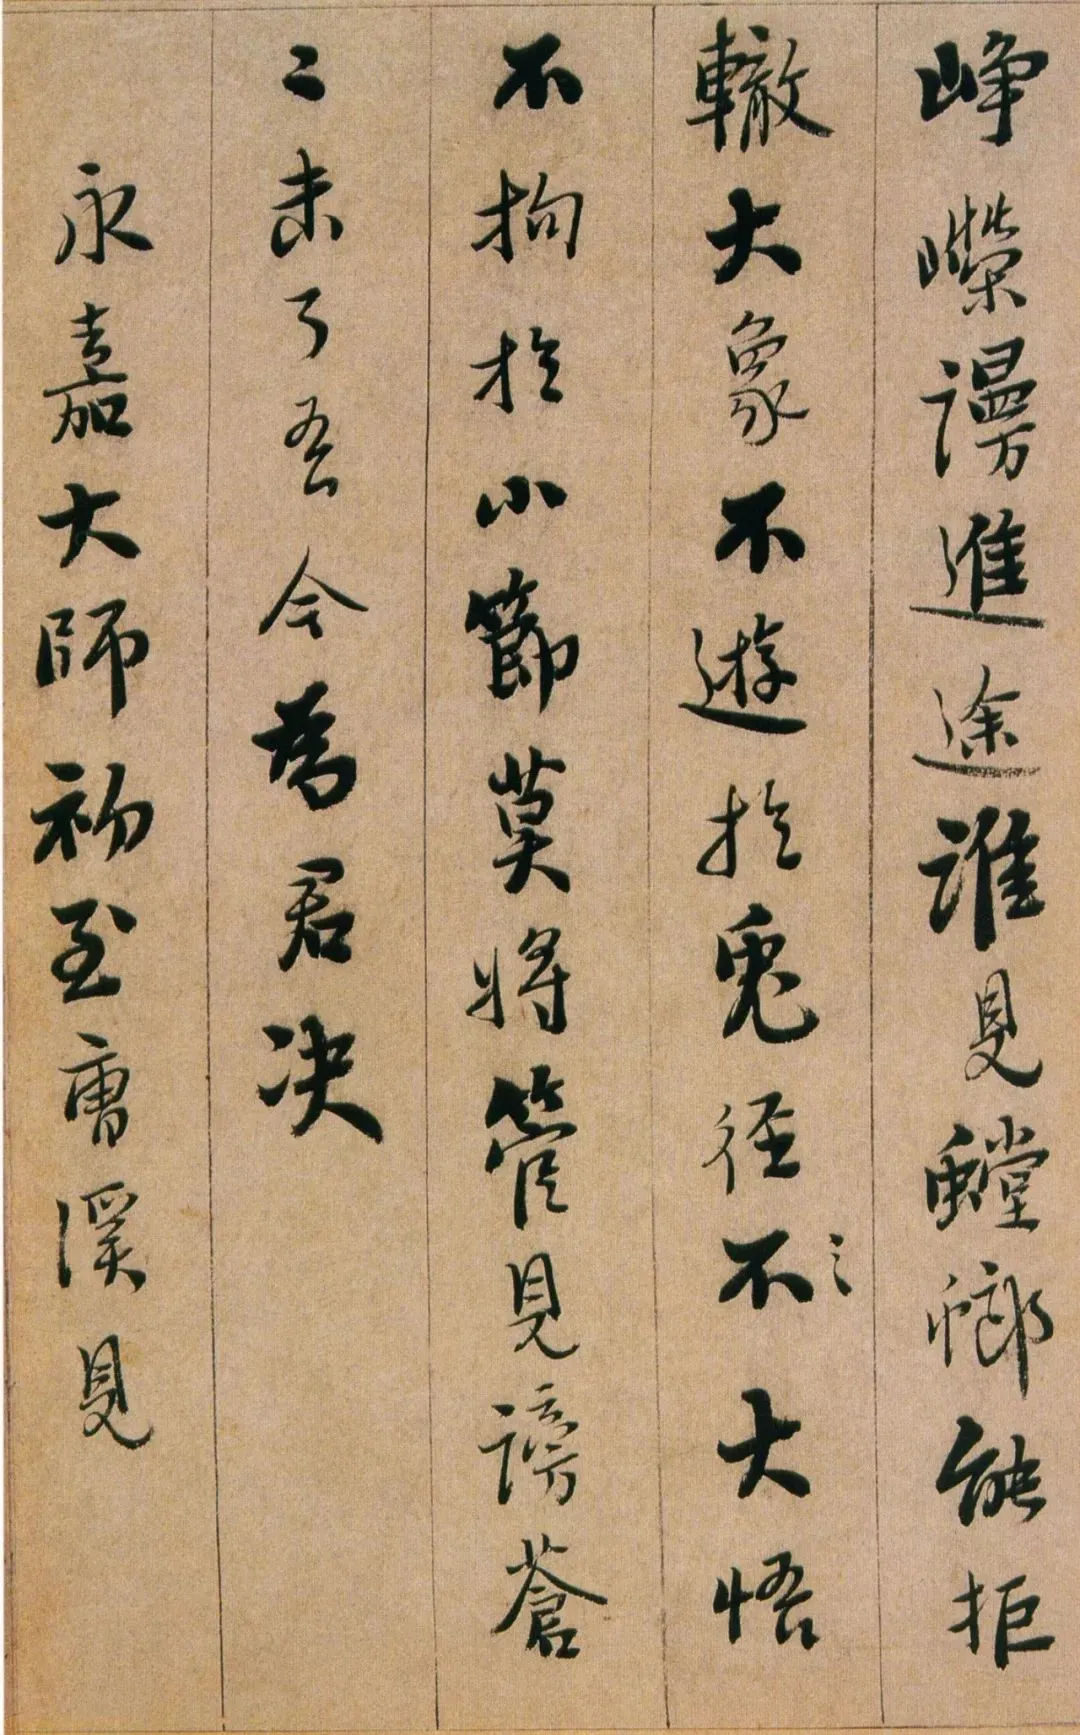 崢嶸謾進途誰見螳螂能拒
轍大象不遊於兔徑不大悟
不拘於小節莫將管見謗蒼
〻未了吾今為君决
永嘉大師初至曹溪見